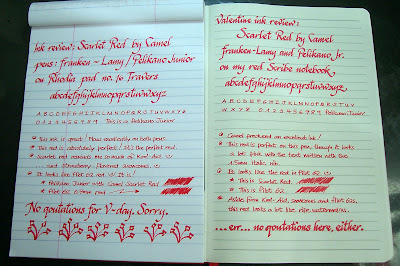 Ink review: Scarlet Red by Camel
pens: Franken-Lamy / Pelikano Junior
on Rhodia pad no. 16 Travers
abcdefghijklmnopqrstuvwxyz
ABCDEFGHIJKLMNOPQRSTUVWXYZ
0123456789 This is a Pelikano Junior
This ink is great! Flows excellently on both pens.
This red is absolutely perfect! It's the perfect red.
Scarlet red reminds me so much of Kool-Aid
and Strawberry flavored
It looks like Plat 62 red! It is!
Pelikano Junior with Camel Scarlet Red
Plat 62
No qoutations for V-day. Sorry.
Valentine ink review:
Scarlet Red by Camel
Franken-Lamy and Pelikano Jr.
on my red Scribe notebook
abcdefghijklmnopqrstuvwxyz
ABCDEFGHIJKLMNOPQRSTUV
WXYZ 0123456789 Pelikano Junior
Camel produced an excellent ink!
This red is perfect on this pen, though it looks
a lot pink with the text written with the
1.5mm italic nib.
It looks like the red in Plat 62
This is Scarlet Red.
This is Plat 62
Aside from Kool-Aid, and Plat 62s,
this red looks a lot like ripe watermelons.
...err... no qoutations here, either.